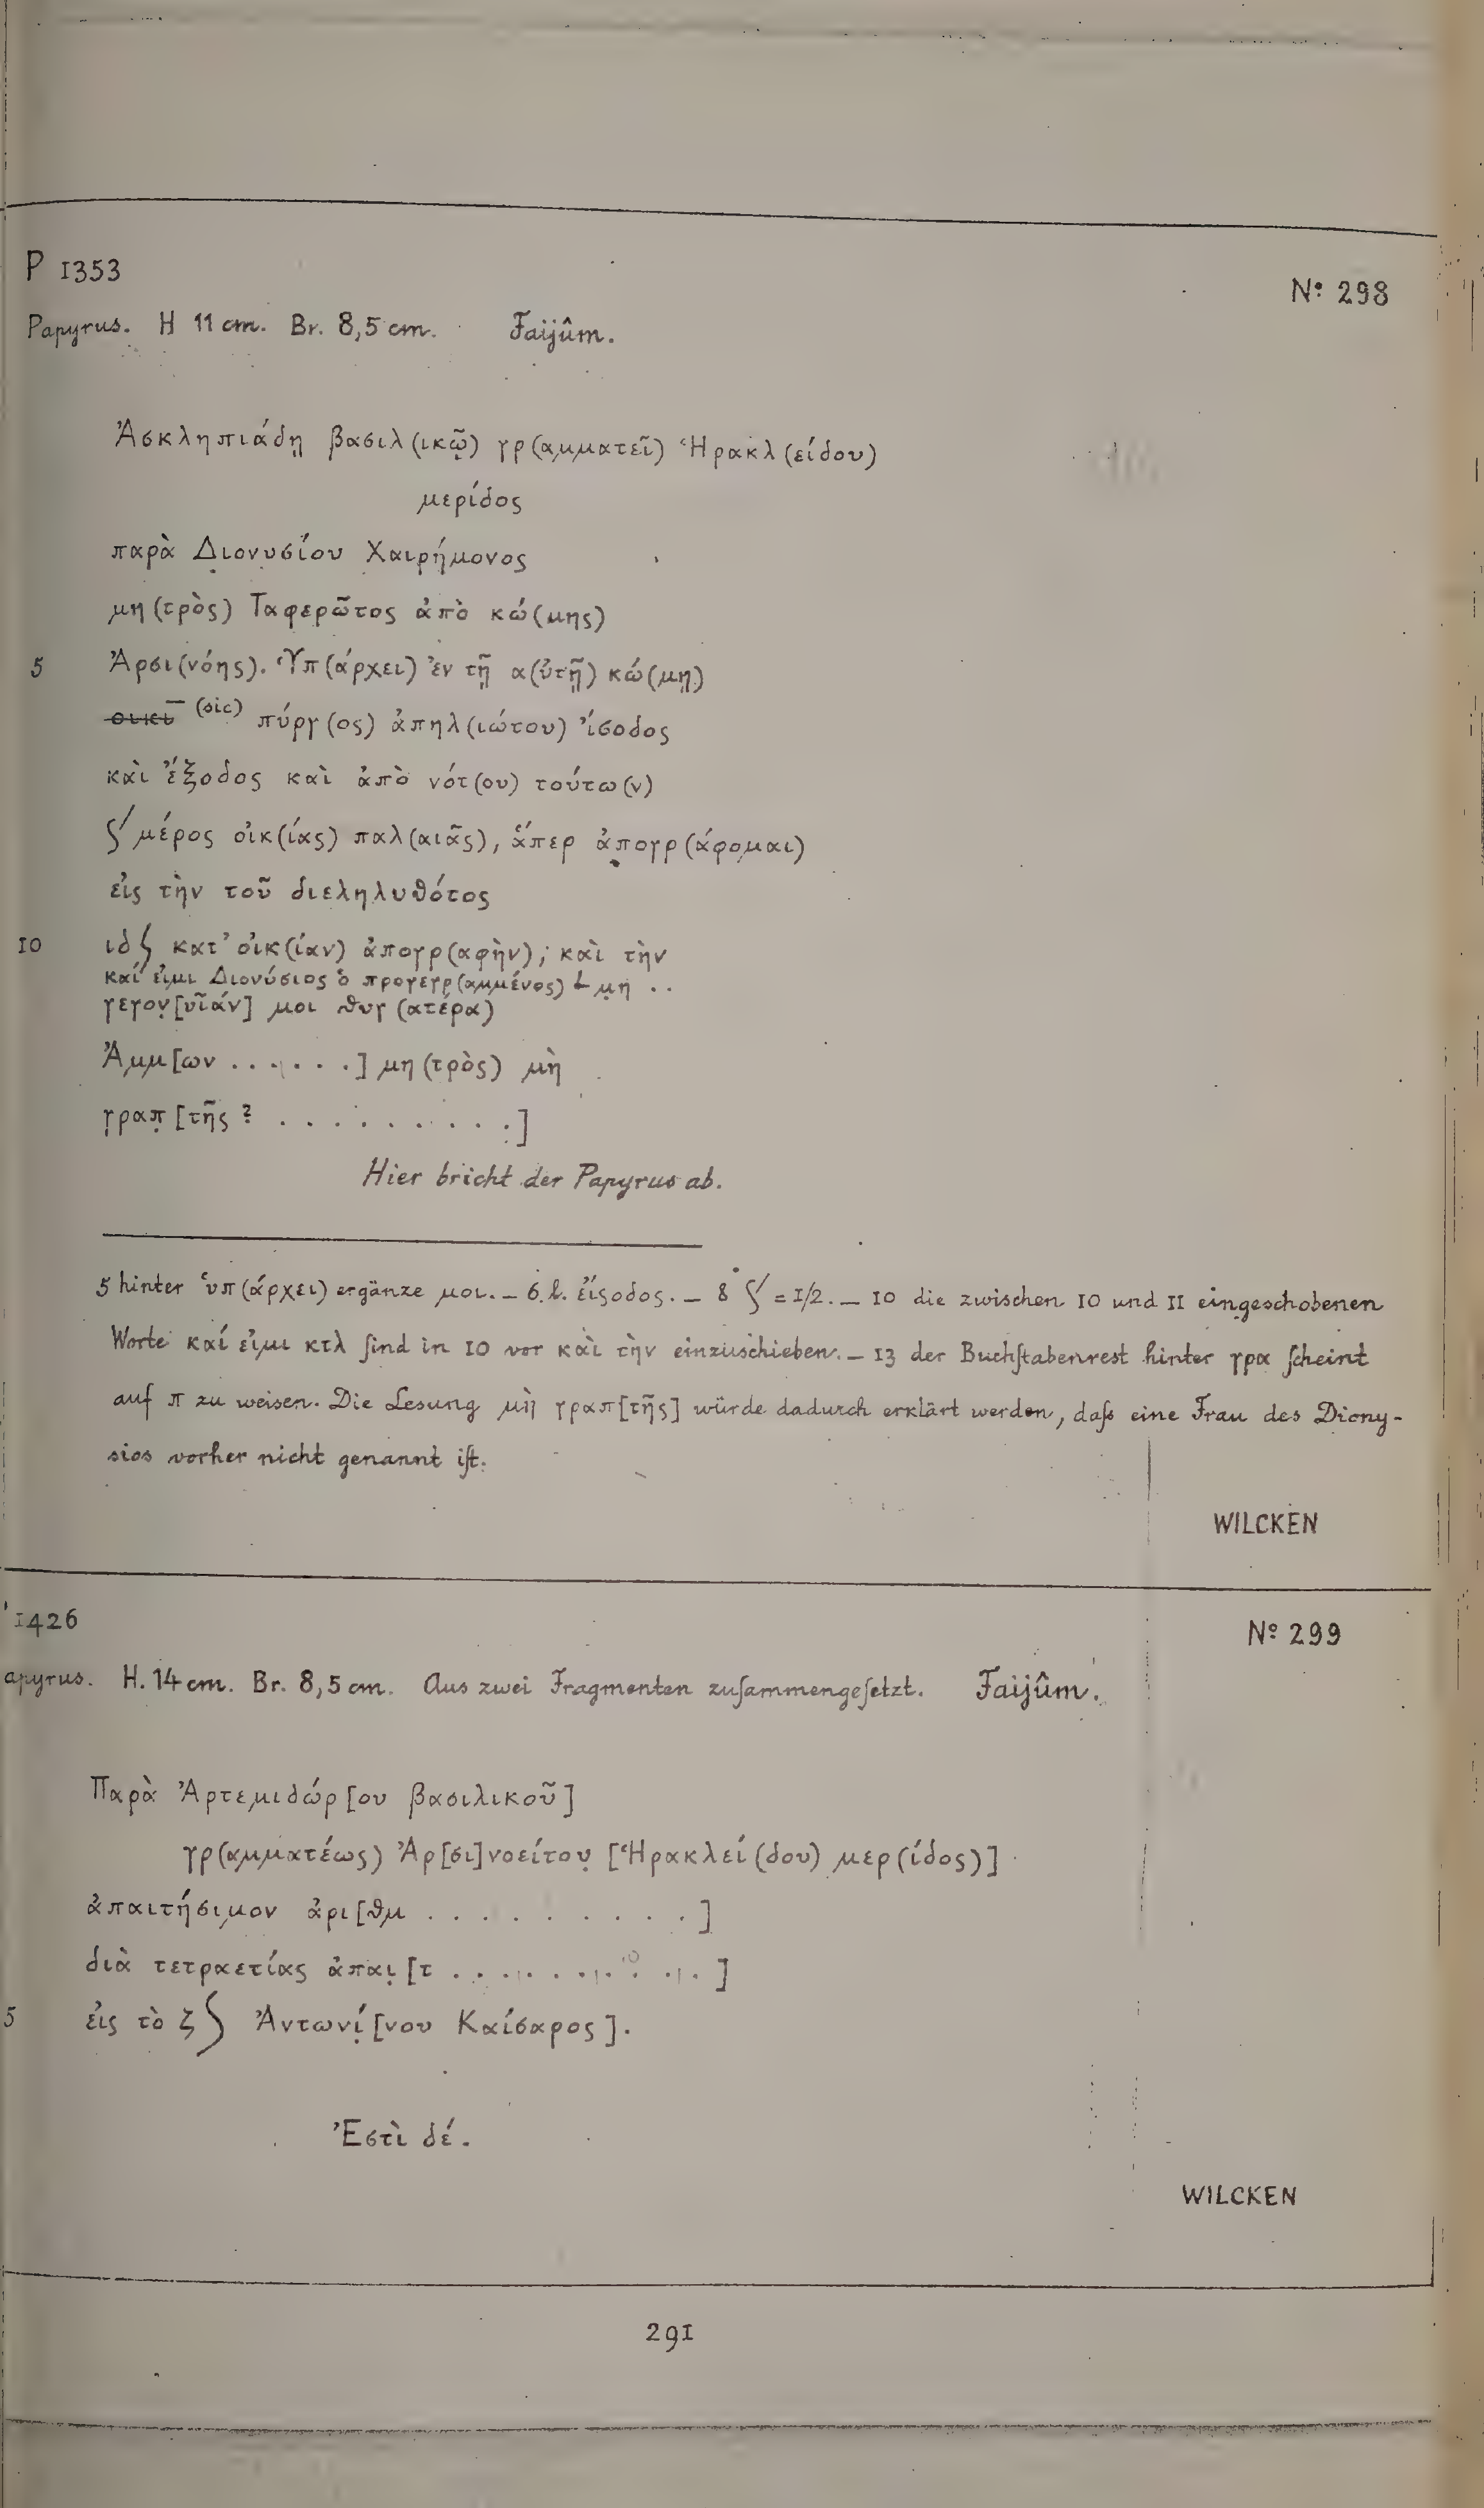 P 1353
Nº 298
Papyrus. H 11 cm. Br. 8,5 cm. Faijûm.
Ἀσκληπιάδῃ βασιλ(ικῷ) γρ(αμματεῖ) Ἡρακλ(είδου)
μερίδος
παρὰ Διονυσίου Χαιρήμονος
μη(τρὸς) Ταφερῶτος ἀπὸ κώ(μης)
5 Ἀρσι(νόης). Ὑπ(άρχει) ἐν τῇ α(ὐτῇ) κώ(μῃ)
(sic) πύργ(ος) ἀπηλ(ιώτου) ἴσοδος
καὶ ἔξοδος καὶ ἀπὸ νότ(ου) τούτω(ν)
ϛ´ μέρος οἰκ(ίας) παλ(αιᾶς), ἅπερ ἀπογρ(άφομαι)
εἰς τὴν τοῦ διεληλυθότος
10 ιδ ϛ κατ' οἰκ(ίαν) ἀπογρ(αφὴν); καὶ τὴν
καί εἰμι Διονύσιος ὁ προγεγρ(αμμένος) L μη ..
γεγον̣[υῖάν] μοι θυγ(ατέρα)
Ἀμμ[ων . . . . . .] μη(τρὸς) μὴ
γραπ̣[τῆς ? . . . . . . . . .]
Hier bricht der Papyrus ab.
5 hinter ὑπ(άρχει) ergänze μοι. – 6. l. εἴσοδος. – 8 ϛ´ = 1/2. – 10 die zwischen 10 und 11 eingeschobenen
Worte καί εἰμι κτλ ſind in 10 vor καὶ τὴν einzuschieben. – 13 der Buchſtabenrest hinter γρα ſcheint
auf π zu weisen. Die Lesung μὴ γραπ[τῆς] würde dadurch erklärt werden, daſs eine Frau des Diony-
sios vorher nicht genannt iſt.
WILCKEN
1426
Nº 299
apyrus. H. 14 cm. Br. 8,5 cm. Aus zwei Fragmenten zuſammengeſetzt. Faijûm.
Παρὰ Ἀρτεμιδώρ[ου βασιλικοῦ]
γρ(αμματέως) Ἀρ[σι]νοείτου̣ [Ἡρακλεί(δου) μερ(ίδος)]
ἀπαιτήσιμον ἀρι[θμ . . . . . . . . . .]
διὰ τετραετίας ἀπαι̣[τ . . . . . . . . . .]
5 εἰς τὸ ζ ϛ Ἀντωνί̣[νου Καίσαρος].
Ἐστὶ δέ.
WILCKEN
291